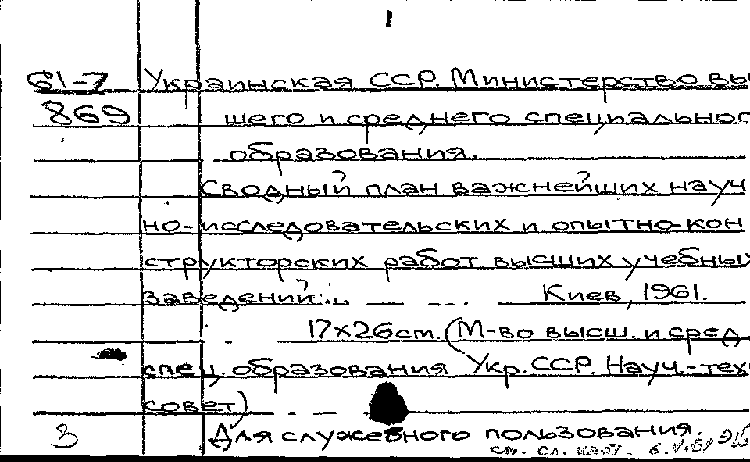 61-7 Украинская ССР. Министерство вы
869 шего и среднего специально
образования.
Сводный план важнейших науч
но-исследовательских и опытно-кон
структорских работ высших учебны
заведений... Киев, 1961.
17х26 cm. (М-во высш. и сред.
спец. образования Укр. ССР. Науч.-тех
совет)
3 Для служебного пользования.